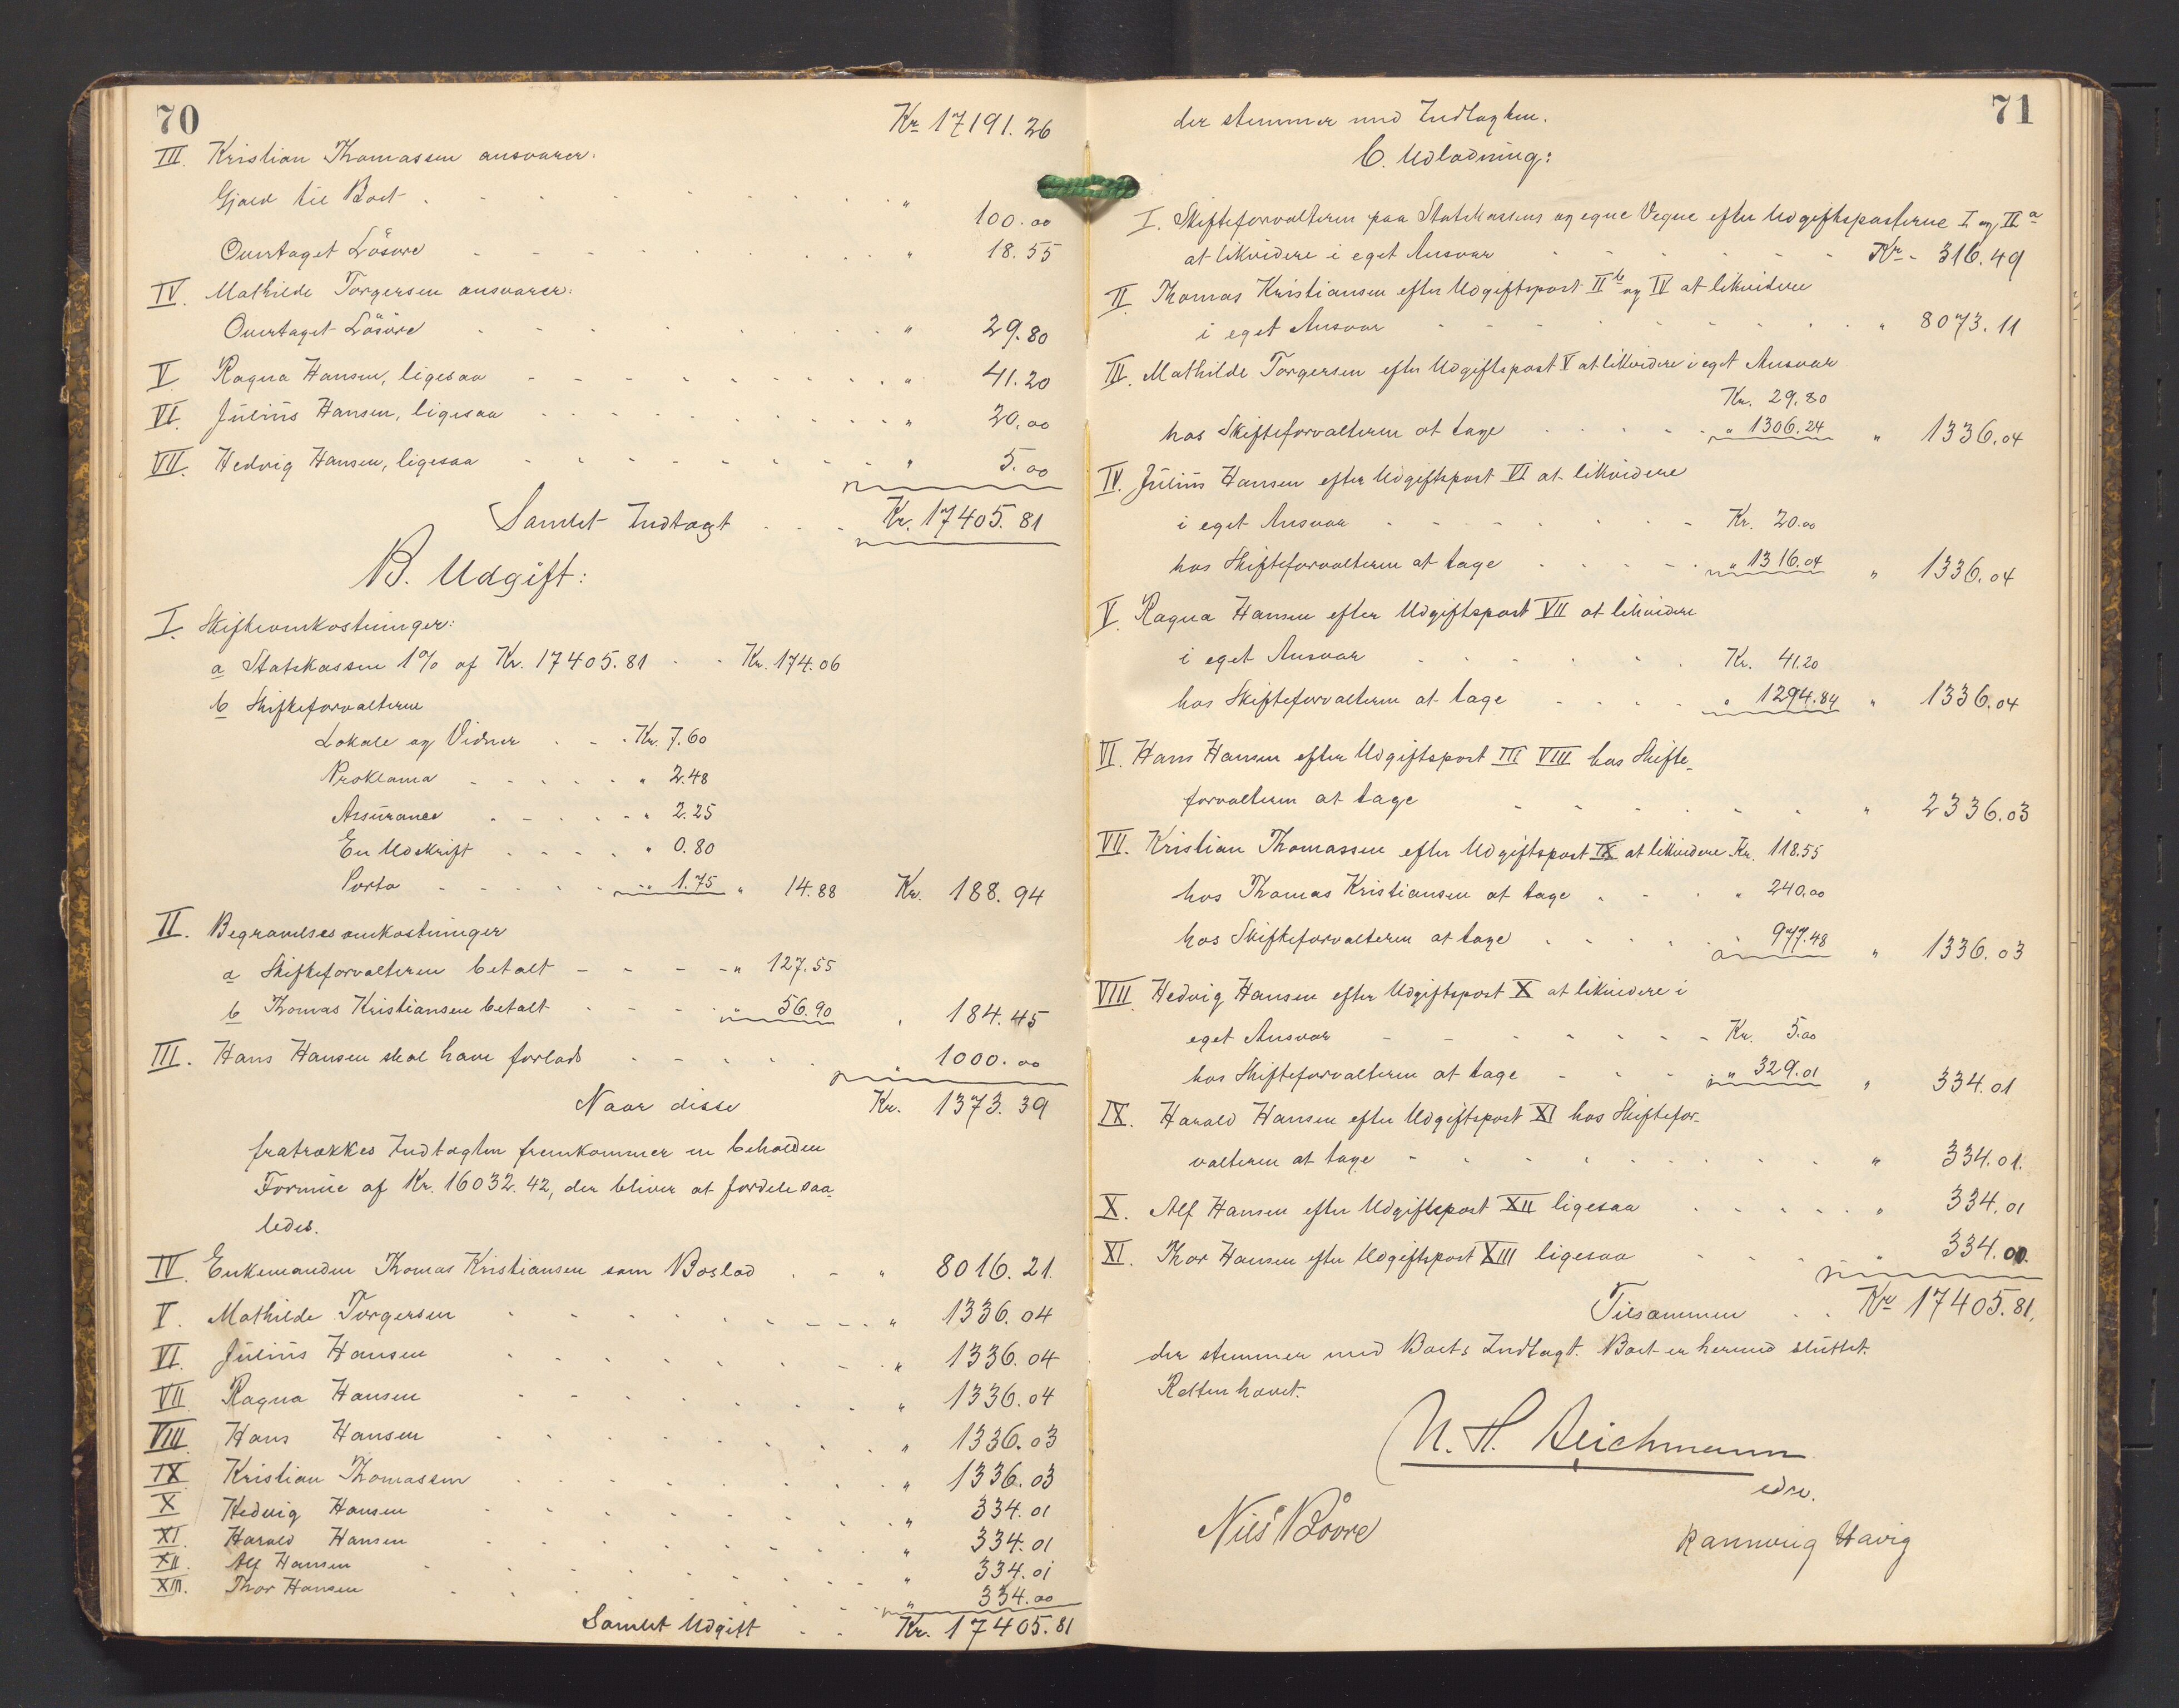 70
Kr. 17191.26
III. Kristian Thomassen ansvarer:
Gjæld til Boet . . . . . . " 100.00
Overtaget Løsøre . . . . . . " 18.55
IV. Mathilde Torgersen ansvarer:
Overtaget Løsøre . . . . . . " 29.80
V. Ragna Hansen, ligesaa . . . . . . " 41.20
VI. Julius Hansen, ligesaa . . . . . . " 20.00
VII. Hedvig Hansen, ligesaa . . . . . . " 5.00
Samlet Indtægt . . . Kr. 17405.81
B. Udgift:
I. Skifteomkostninger:
a Statskassen 1% af Kr. 17405.81 . . Kr. 174.06
b Skifteforvalteren
Lokale og Vidner . . . Kr. 7.60
Proklama . . . . . " 2.48
Assurance . . . . . " 2.25
En Udskrift . . . . " 0.80
Porto . . . . . " 1.75 " 14.88 Kr. 188.94
II. Begravelsesomkostninger
a Skifteforvalteren betalt - - - - " 127.55
b Thomas Kristiansen betalt . . . . " 56.90 " 184.45
III. Hans Hansen skal have forlods . . . . " 1000.00
Naar disse Kr. 1373.39
fratrækkes Indtægten fremkommer en beholden
Formue af Kr. 16032.42, der bliver at fordele saa-
ledes.
IV. Enkemanden Thomas Kristiansen som Boslod . . " 8016.21.
V. Mathilde Torgersen . . . . . . " 1336.04
VI. Julius Hansen . . . . . . " 1336.04
VII. Ragna Hansen . . . . . . " 1336.04
VIII. Hans Hansen . . . . . . " 1336.03
IX Kristian Thomassen . . . . . . " 1336.03
X Hedvig Hansen . . . . . . " 334.01
XI. Harald Hansen . . . . . . " 334.01
XII. Alf Hansen . . . . . . " 334.01
XIII. Thor Hansen . . . . . . " 334.00
Samlet Udgift . . Kr. 17405.81
71
der stemmer med Indtægten.
C. Udlodning:
I. Skifteforvalteren paa Statskassens og egne Vegne efter Udgiftsposterne I og II a
at likvidere i eget Ansvar . . . . . . Kr. 316.49
II. Thomas Kristiansen efter Udgiftspost II b og IV at likvidere
i eget Ansvar . . . . . . " 8073.11
III. Mathilde Torgersen efter Udgiftspost V at likvidere i eget Ansvar
Kr. 29.80
hos Skifteforvalteren at tage . . . . . " 1306.24 " 1336.04
IV. Julius Hansen efter Udgiftspost VI at likvidere
i eget Ansvar . . . . . . Kr. 20.00
hos Skifteforvalteren at tage . . . . " 1316.04 " 1336.04
V. Ragna Hansen efter Udgiftspost VII at likvidere
i eget Ansvar . . . . . . Kr. 41.20
hos Skifteforvalteren at tage . . . . " 1294.84 " 1336.04
VI. Hans Hansen efter Udgiftspost III VIII hos Skifte-
forvalteren at tage . . . . . . " 2336.03
VII. Kristian Thomassen efter Udgiftspost IX at likvidere Kr. 118.55
hos Thomas Kristiansen at tage . . . " 240.00
hos Skifteforvalteren at tage . . . . " 977.48 " 1336.03
VIII Hedvig Hansen efter Udgiftspost X at likvidere i
eget Ansvar . . . . . . Kr. 5.00
hos Skifteforvalteren at tage . . . . " 329.01 " 334.01
IX. Harald Hansen efter Udgiftspost XI hos Skiftefor-
valteren at tage . . . . . . " 334.01.
X. Alf Hansen efter Udgiftspost XII ligesaa . . . . . " 334.01
XI. Thor Hansen efter Udgiftspost XIII ligesaa . . . . " 334.00.
Tilsammen . . Kr. 17405.81.
der stemmer med Boets Indtægt. Boet er hermed sluttet.
Retten hævet.
N. H. Aeichmann
edsv.
Nils Bøvre
Rannveig Havig